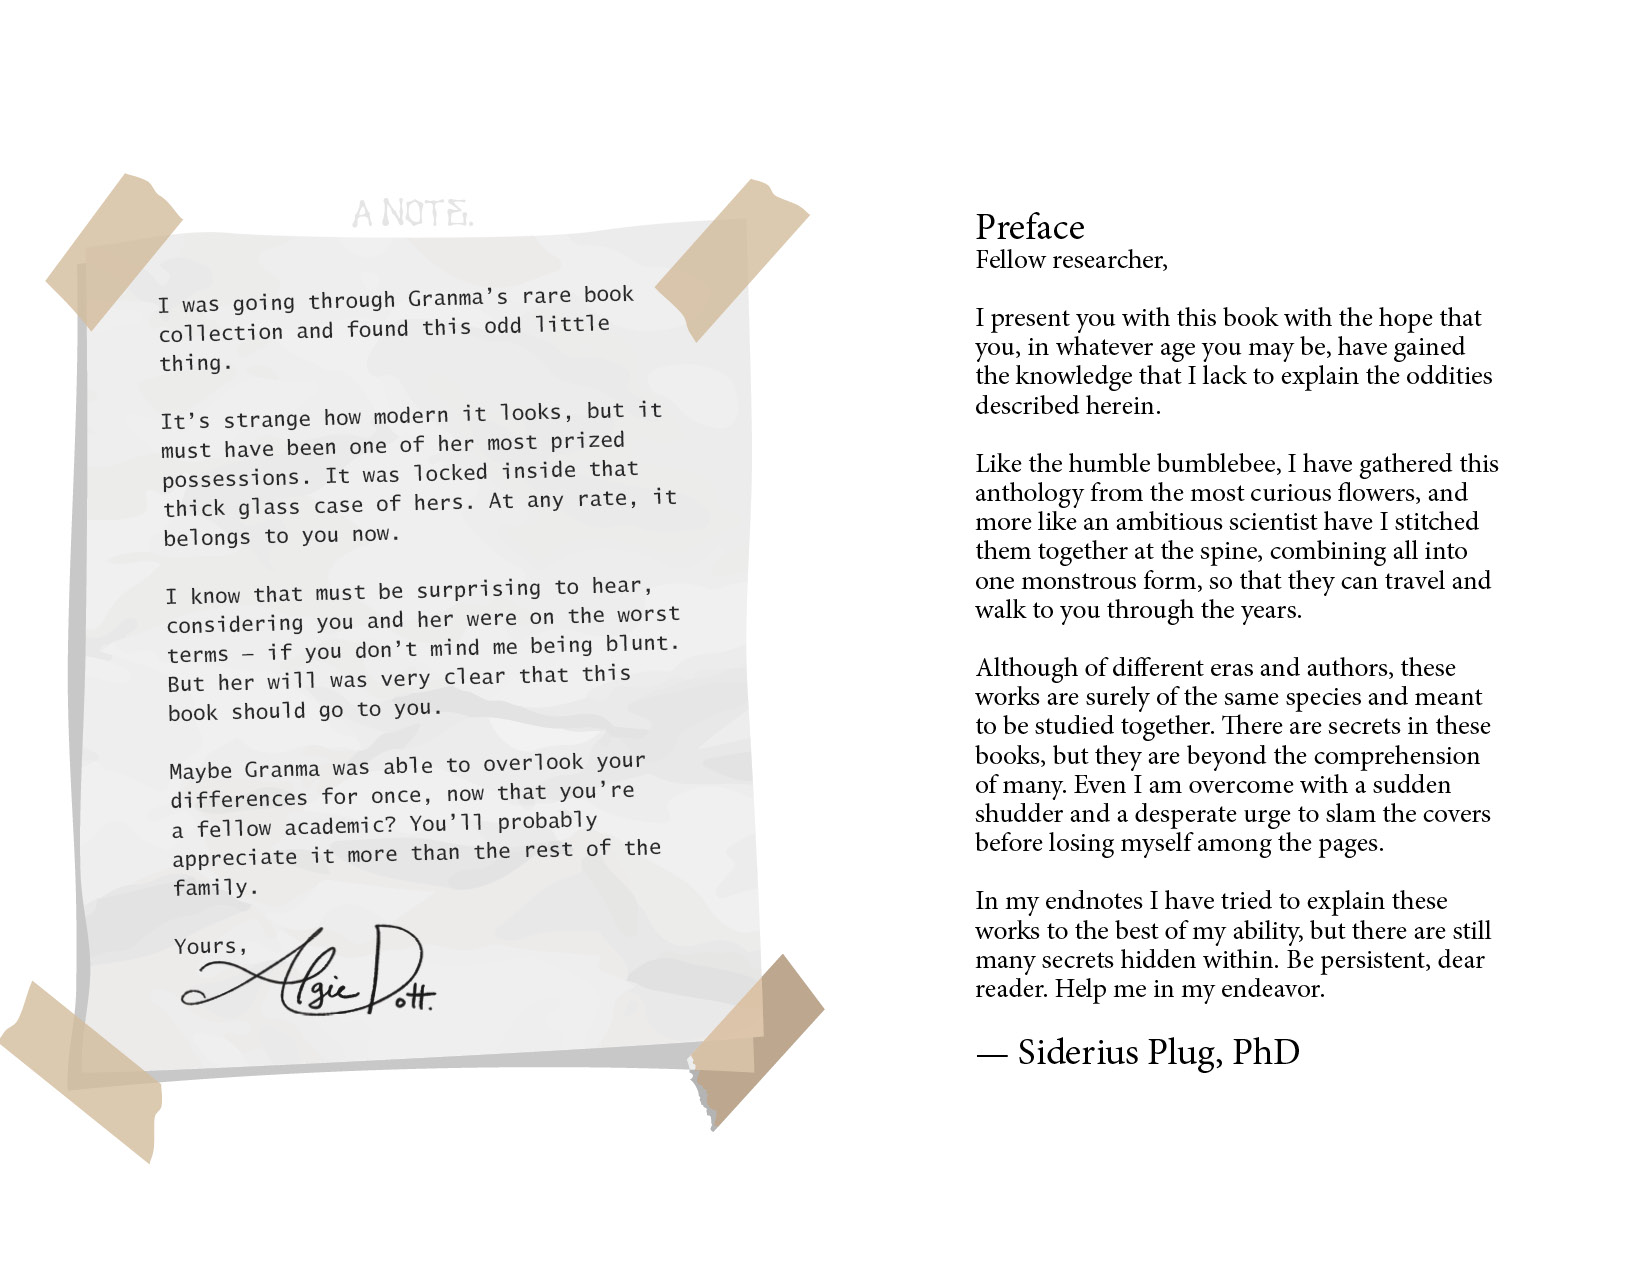 A NOTE.
I was going through Granma’s rare book
collection and found this odd little
thing.
It’s strange how modern it looks, but it
must have been one of her most prized
possessions. It was locked inside that
thick glass case of hers. At any rate, it
belongs to you now.
I know that must be surprising to hear,
considering you and her were on the worst
terms — if you don’t mind me being blunt.
But her will was very clear that this
book should go to you.
Maybe Granma was able to overlook your
differences for once, now that you’re
a fellow academic? You’ll probably
appreciate it more than the rest of the
family.
Yours,
Algie Dott.
Preface
Fellow researcher,
I present you with this book with the hope that
you, in whatever age you may be, have gained
the knowledge that I lack to explain the oddities
described herein.
Like the humble bumblebee, I have gathered this
anthology from the most curious flowers, and
more like an ambitious scientist have I stitched
them together at the spine, combining all into
one monstrous form, so that they can travel and
walk to you through the years.
Although of different eras and authors, these
works are surely of the same species and meant
to be studied together. There are secrets in these
books, but they are beyond the comprehension
of many. Even I am overcome with a sudden
shudder and a desperate urge to slam the covers
before losing myself among the pages.
In my endnotes I have tried to explain these
works to the best of my ability, but there are still
many secrets hidden within. Be persistent, dear
reader. Help me in my endeavor.
— Siderius Plug, PhD